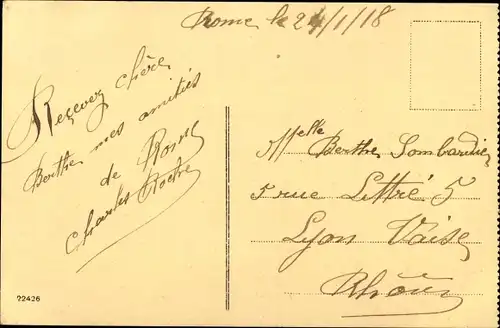 Rome le 24/1/18
Recevez chère
Berthe mes amitiés
de Rome
Charles Roche
Melle Berthe Lombardie
5 rue Littré 5
Lyon Vaise
Rhône
22426